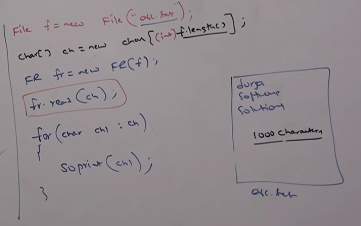 File f = new File("abc.txt");
char[] ch = new char[(int)f.length()];
FR fr = new FR(f);
fr.read(ch);
for(char ch1 : ch)
{
soprint(ch1);
}
durga
software
solutions
1000 characters
abc.txt